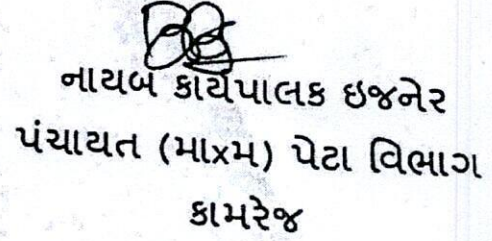 નાયબ કાર્યપાલક ઇજનેર
પંચાયત (માxમ) પેટા વિભાગ
કામરેજ